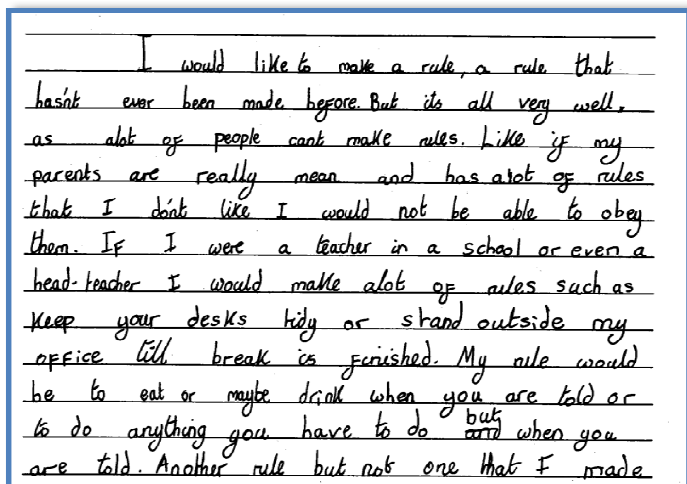 I would like to make a rule, a rule that
hasn't ever been made before. But its all very well,
as alot of people cant make rules. Like if my
parents are really mean and has alot of rules
that I don't like I would not be able to obey
them. If I were a teacher in a school or even a
head-teacher I would make alot of rules such as
keep your desks tidy or stand outside my
office till break is finished. My rule would
be to eat or maybe drink when you are told or
to do anything you have to do but when you
are told. Another rule but not one that I made